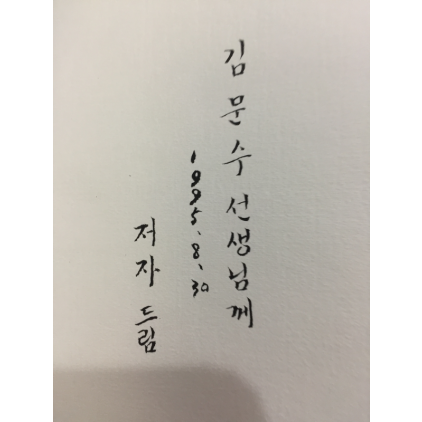 김문수 선생님께
1995.8.30
저자 드림